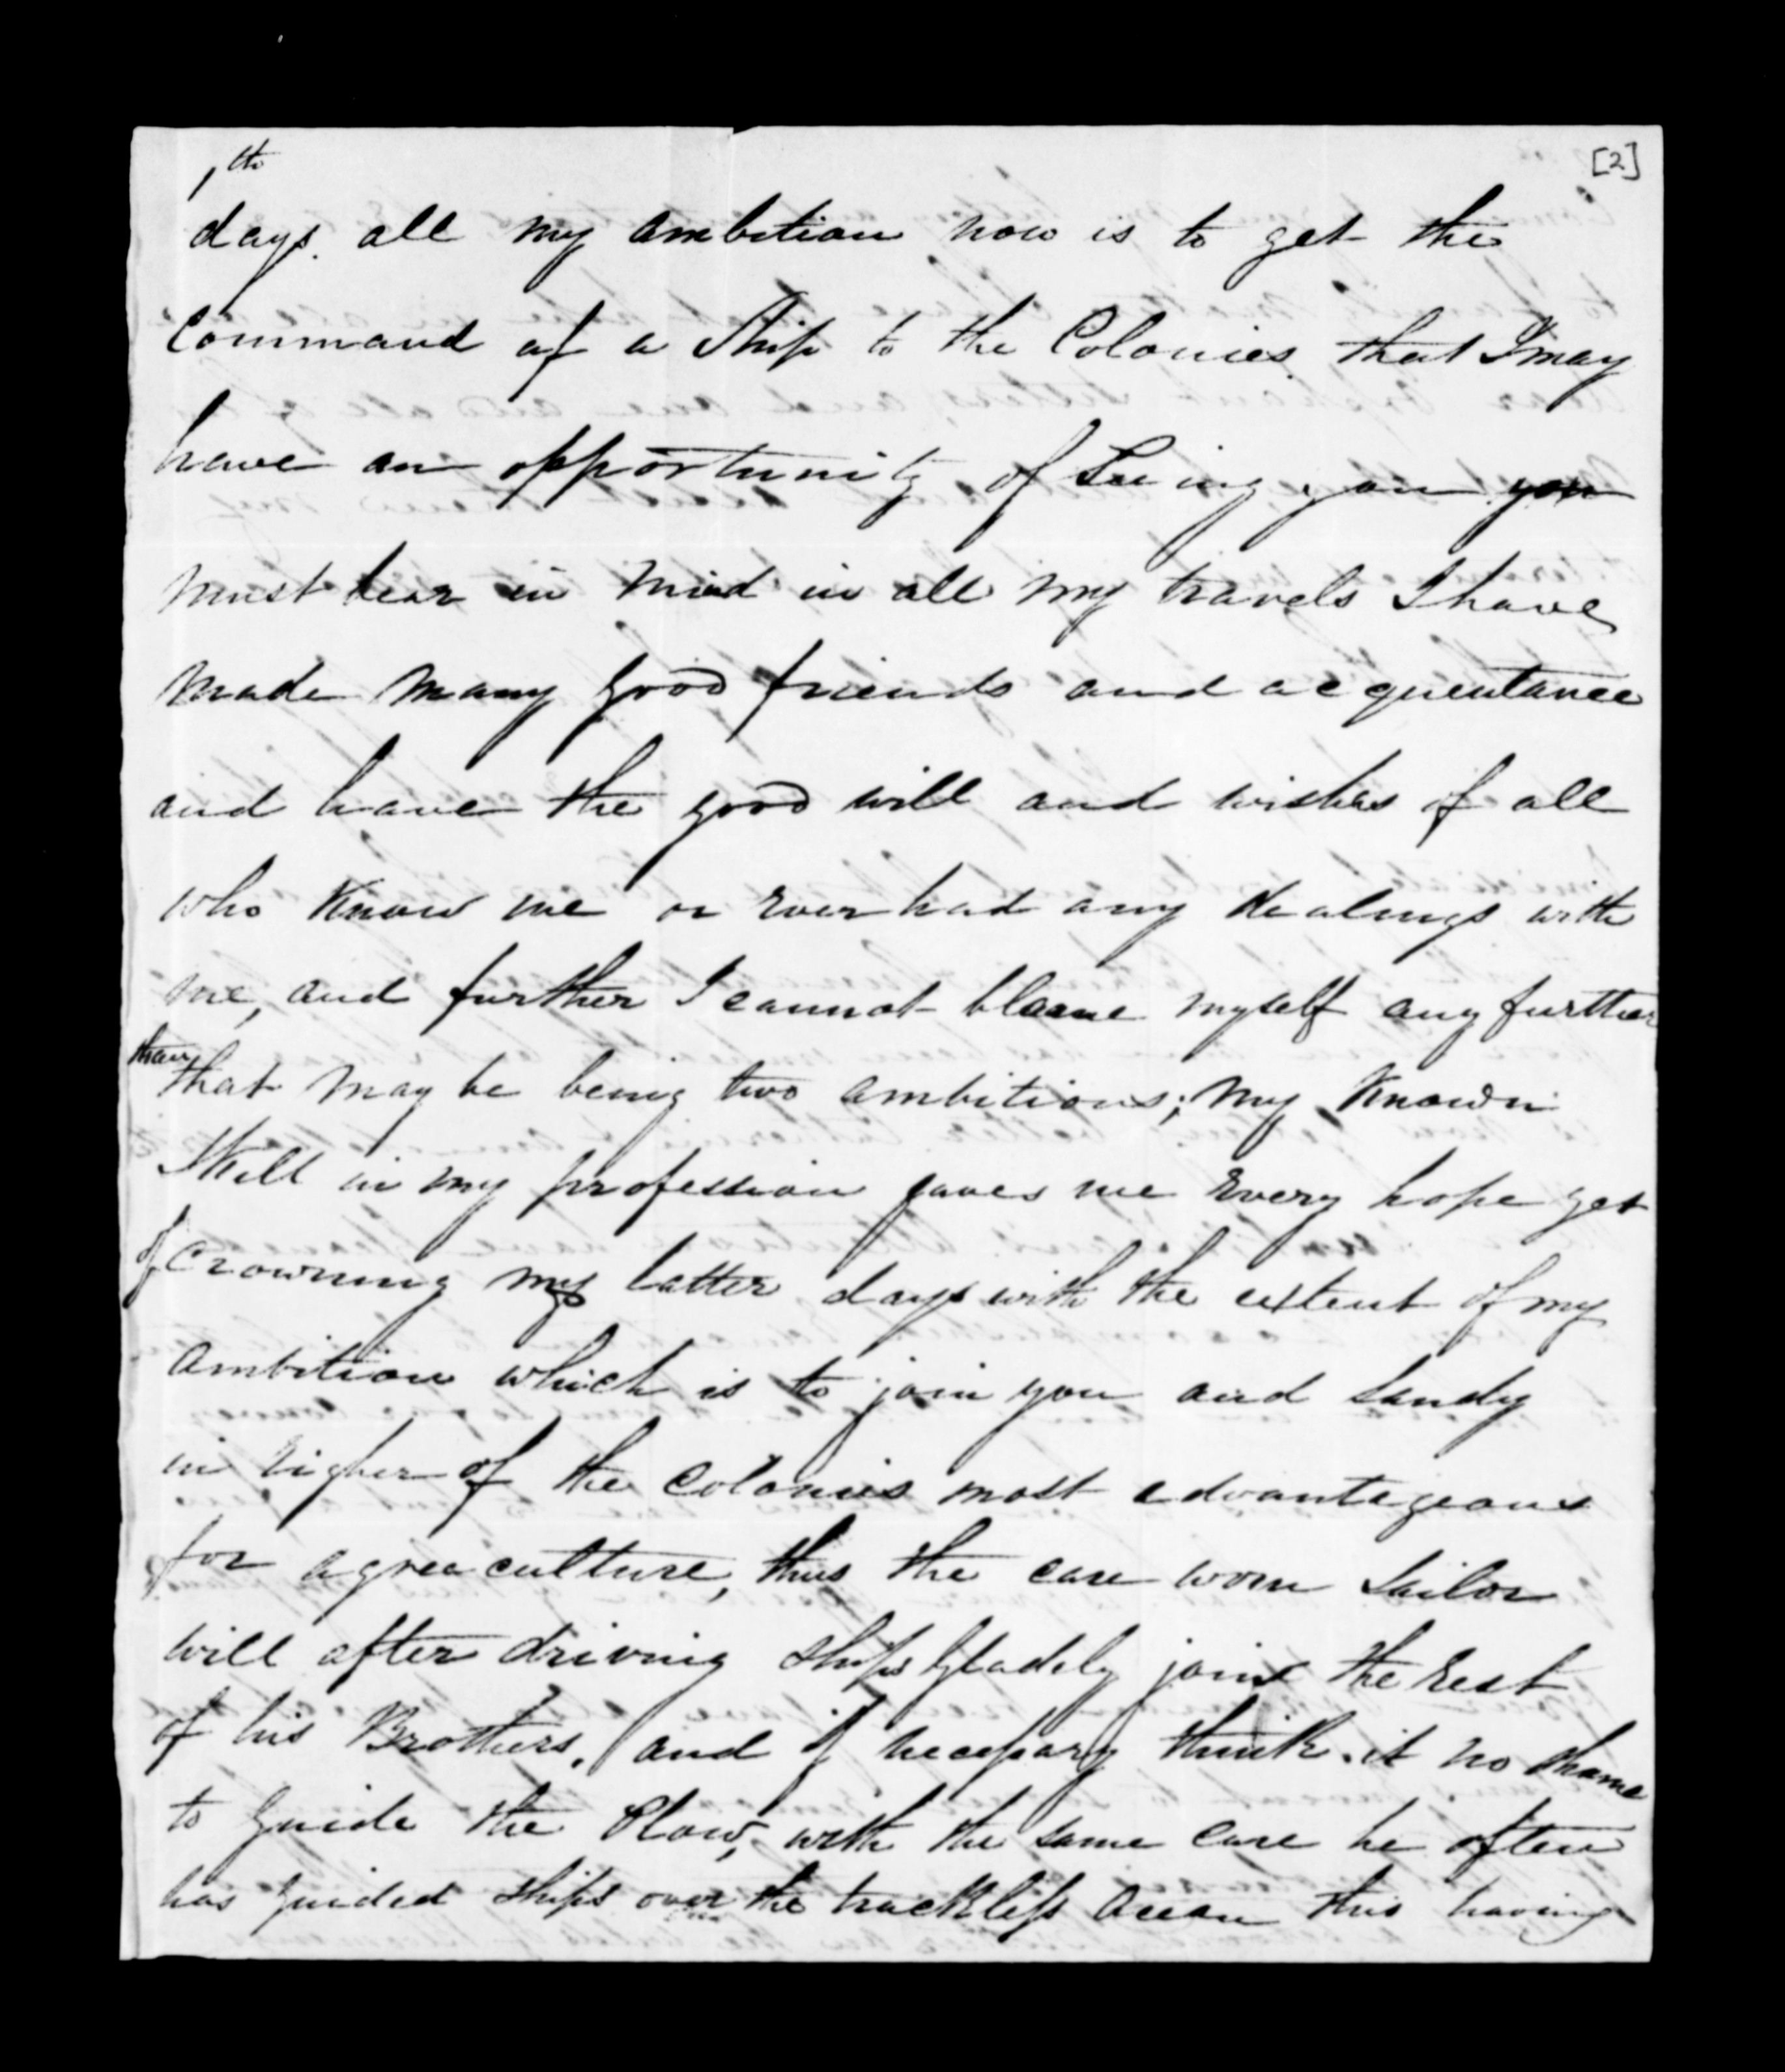 1th
[2]
days. all my ambition now is to get the
Command of a Ship to the Colonies that I may
have an opportunity of Seeing you you
must bear in mind in all my travels I have
made many good friends and acquentance
and have the good will and wishes of all
who Know me or ever had any dealings with
me, and further I cannot blame myself any further
than
that may be being two ambitious; my Known
Skill in my profession gaves me every hope yet
of Crowning my latter days with the extent of my
ambition which is to join you and Sandy
in of the Colonies most advantageous
for agreaculture, thus the care worn Sailor
will after driving Ships Gladely join the rest
of his Brothers, and if necessary think it no shame
to Guide the Plow, with the same care he often
has Guided Ships over the trackless Ocean this having